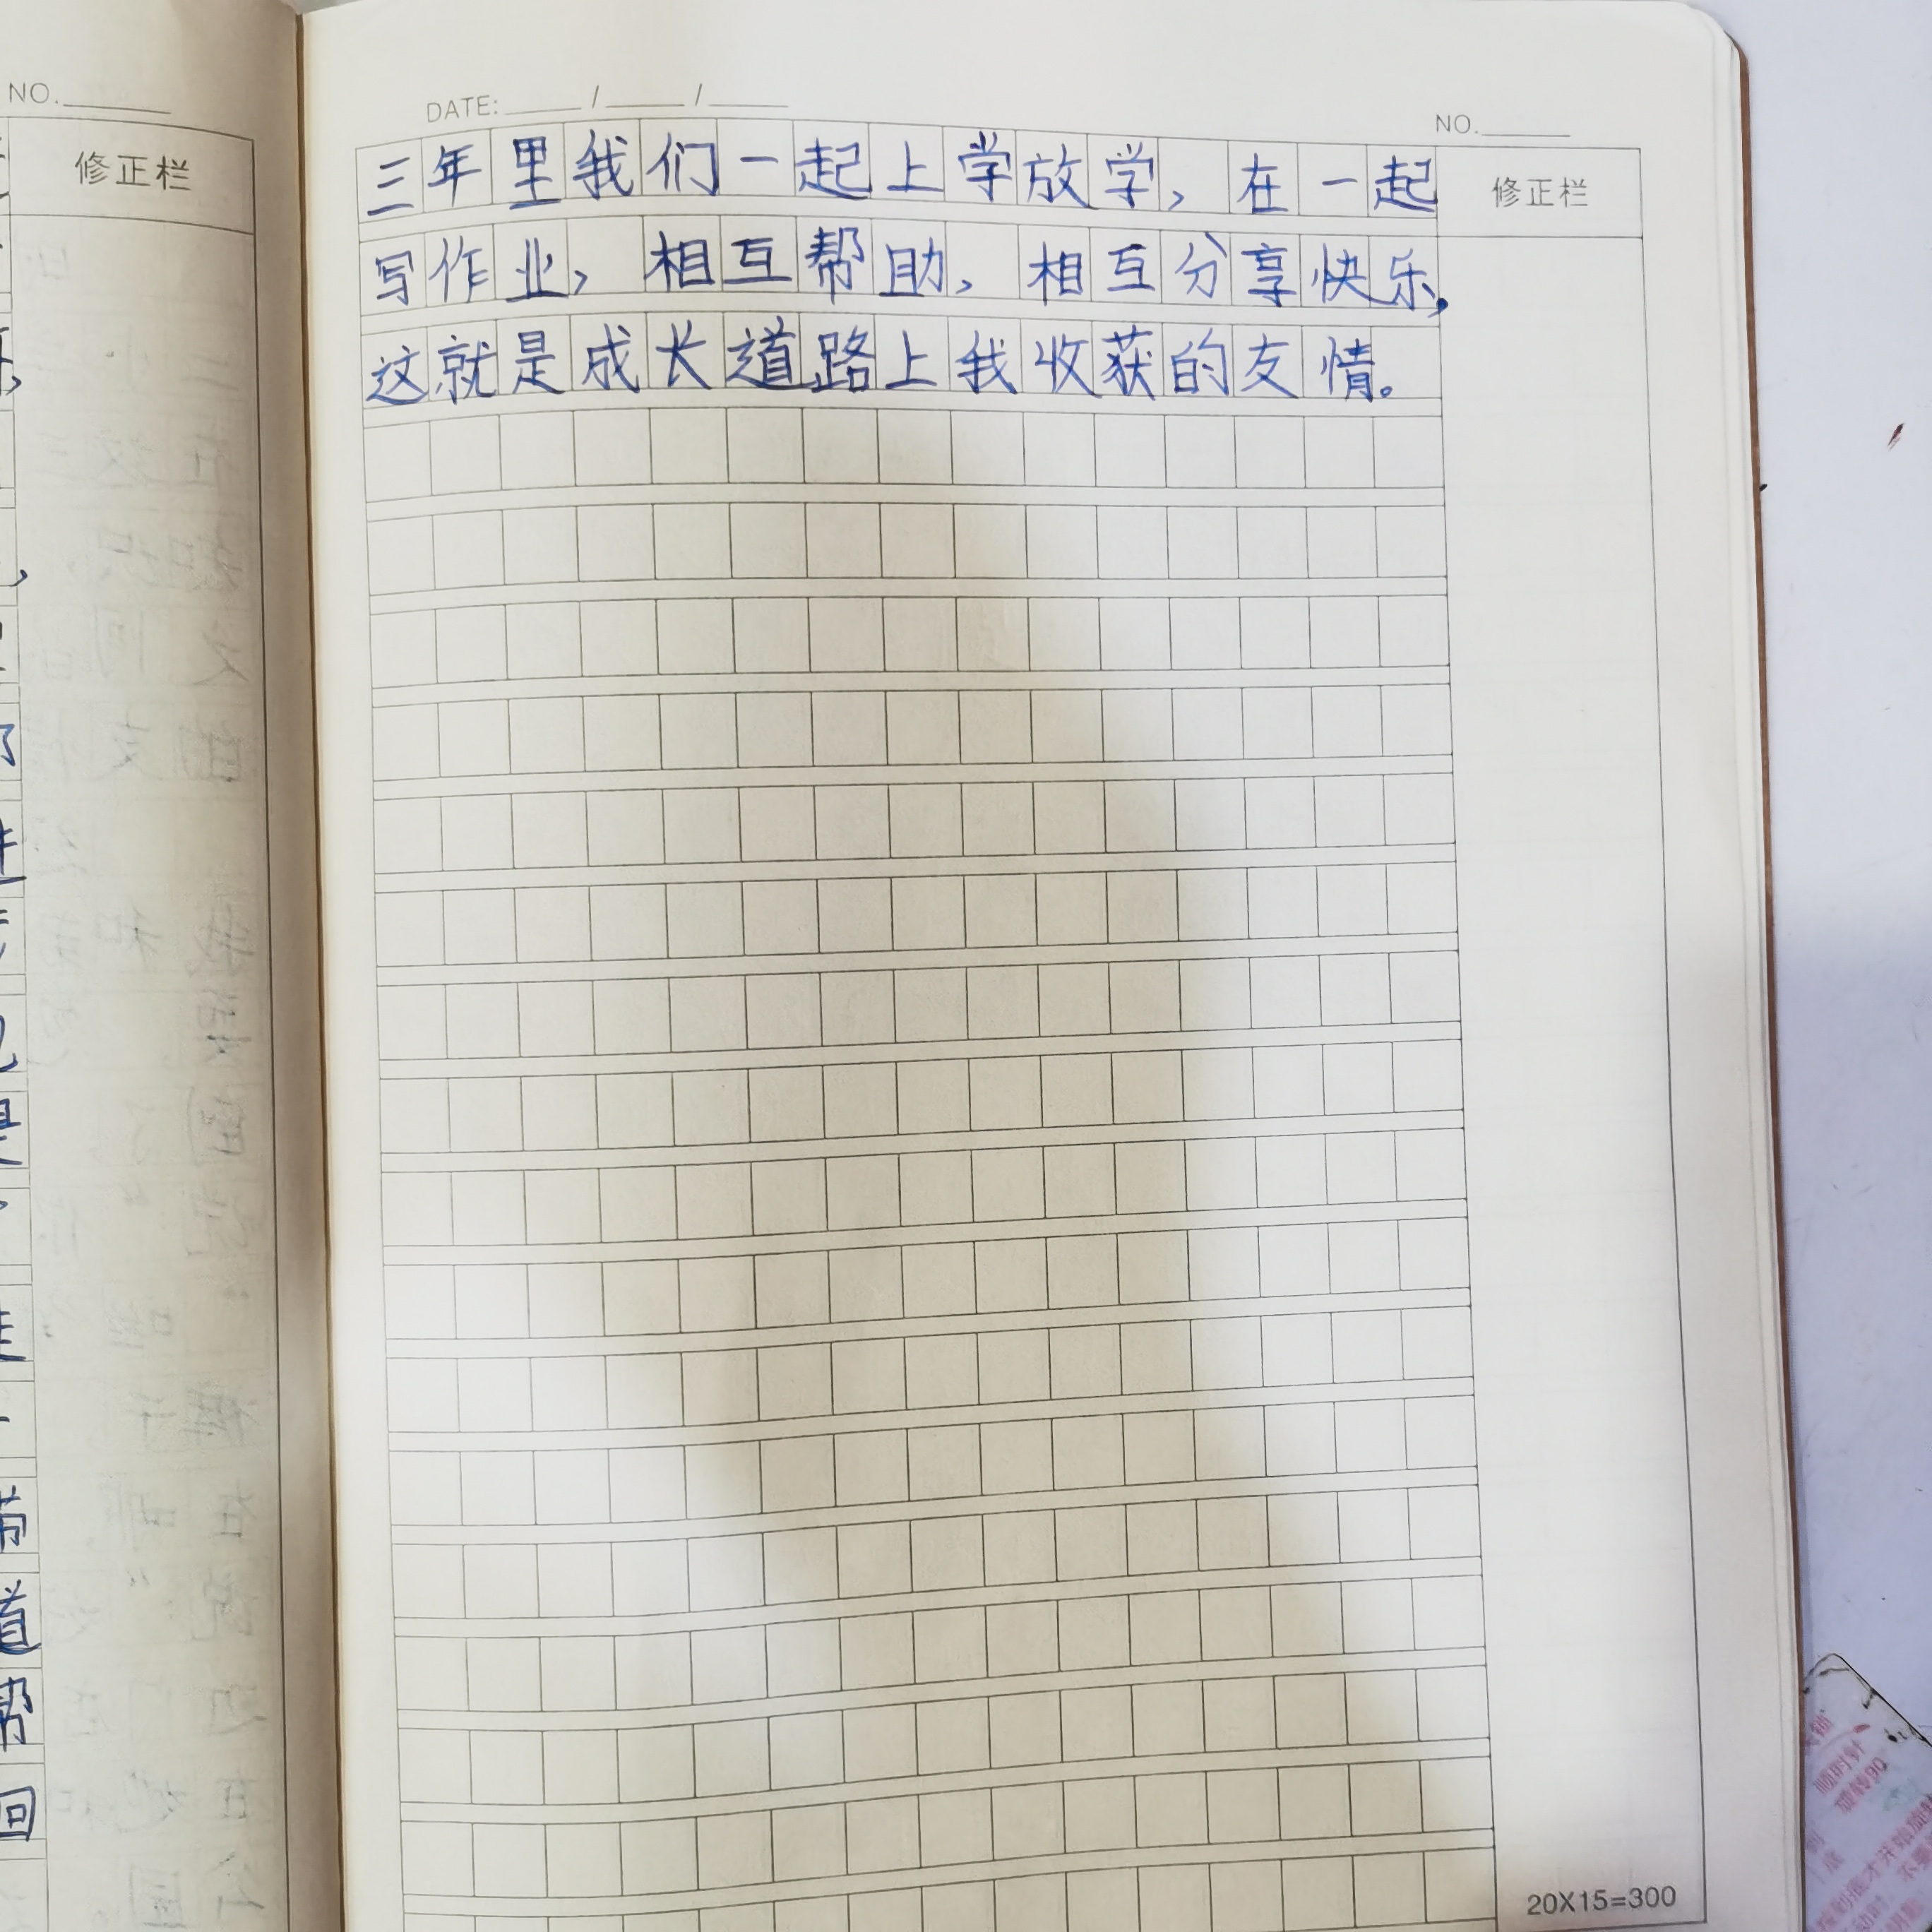 NO.
修正栏
DATE: / /
NO.
修正栏
三年里我们一起上学放学,在一起
写作业,相互帮助,相互分享快乐,
这就是成长道路上我收获的友情。
道
帮
回
20X15=300